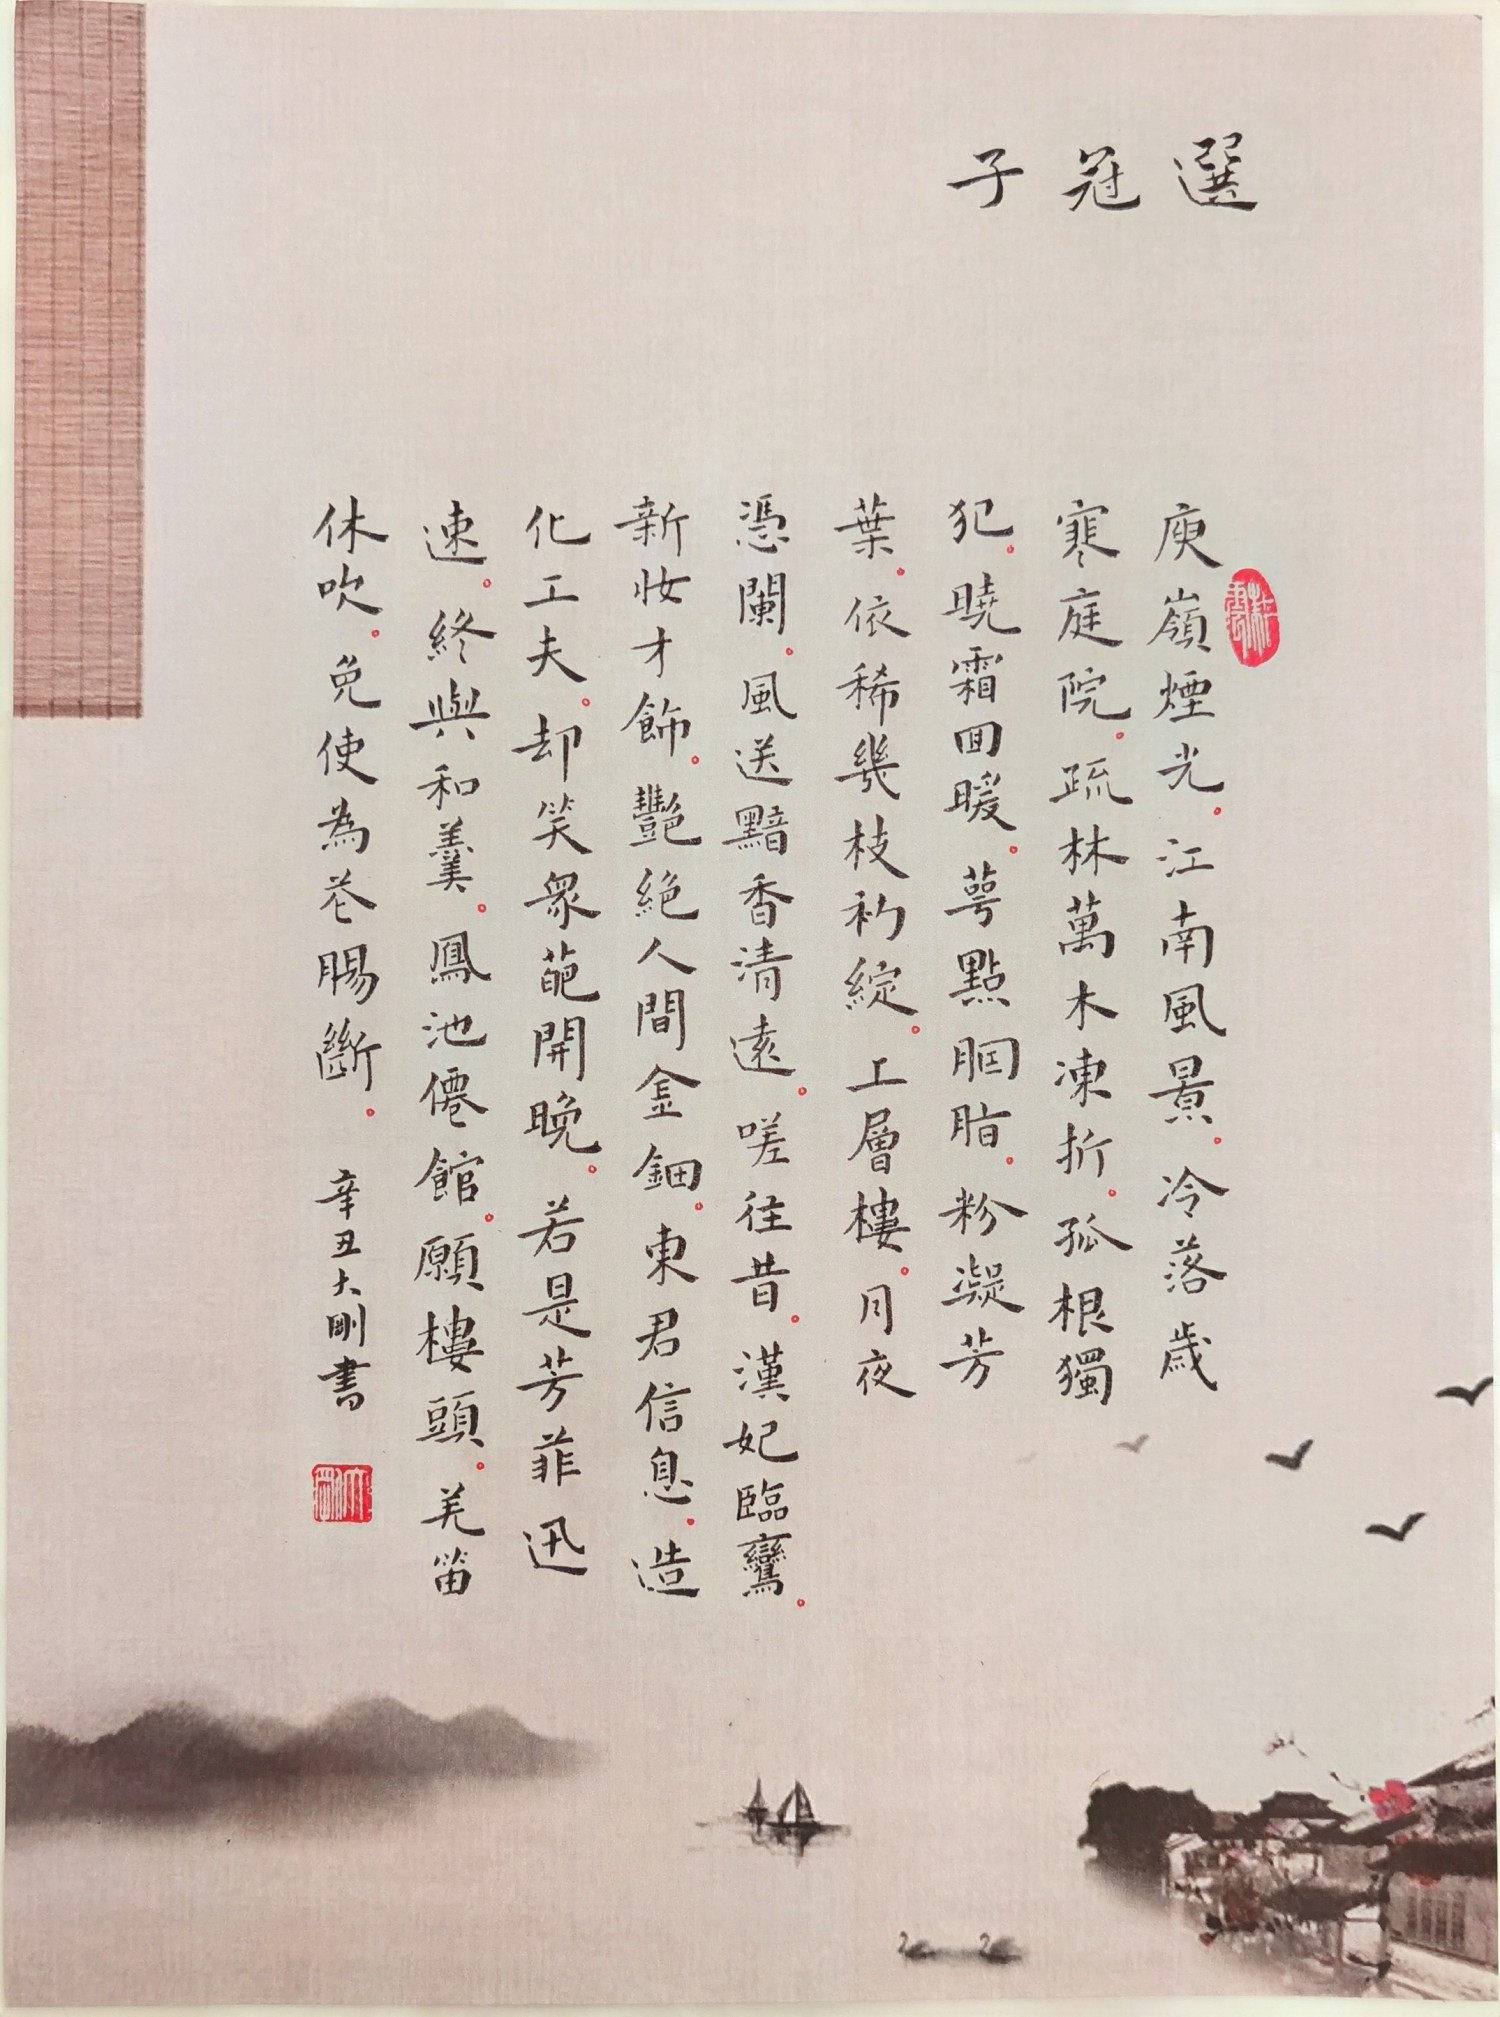 選冠子
庾嶺煙光。江南風景。冷落歲
寒庭院。疏林萬木凍折。孤根獨
犯。曉霜回暖。萼點胭脂。粉凝芳
葉。依稀幾枝初綻。上層樓。月夜
憑闌。風送黯香清遠。嗟往昔。漢妃臨鸞。
新妝才飾。艷絕人間金鈿。東君信息。造
化工夫。却笑衆葩開晚。若是芳菲迅
速。終與和羹。鳳池僊館。願樓頭。羌笛
休吹。免使為花腸斷。
辛丑大剛書